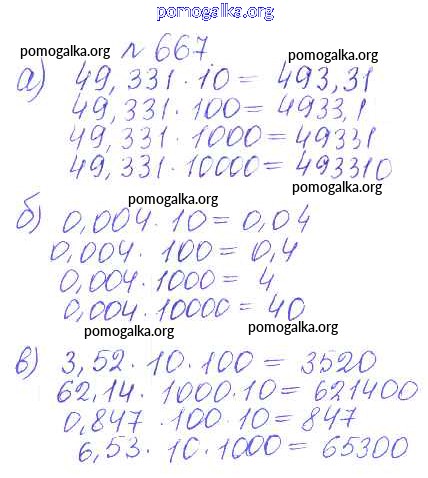 pomogalka.org
№ 667
pomogalka.org pomogalka.org
а) 49,331 · 10 = 493,31
49,331 · 100 = 4933,1
49,331 · 1000 = 49331
49,331 · 10000 = 493310
pomogalka.org pomogalka.org
б) 0,004 · 10 = 0,04
0,004 · 100 = 0,4
0,004 · 1000 = 4
0,004 · 10000 = 40
pomogalka.org pomogalka.org
в) 3,52 · 10 · 100 = 3520
62,14 · 1000 · 10 = 621400
0,847 · 100 · 10 = 847
6,53 · 10 · 1000 = 65300